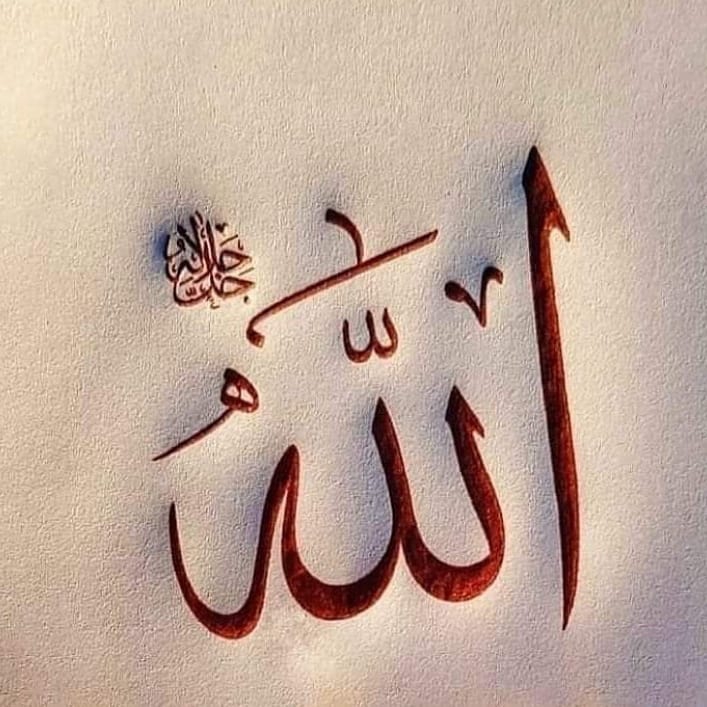 اللّٰهُ
جل جلاله